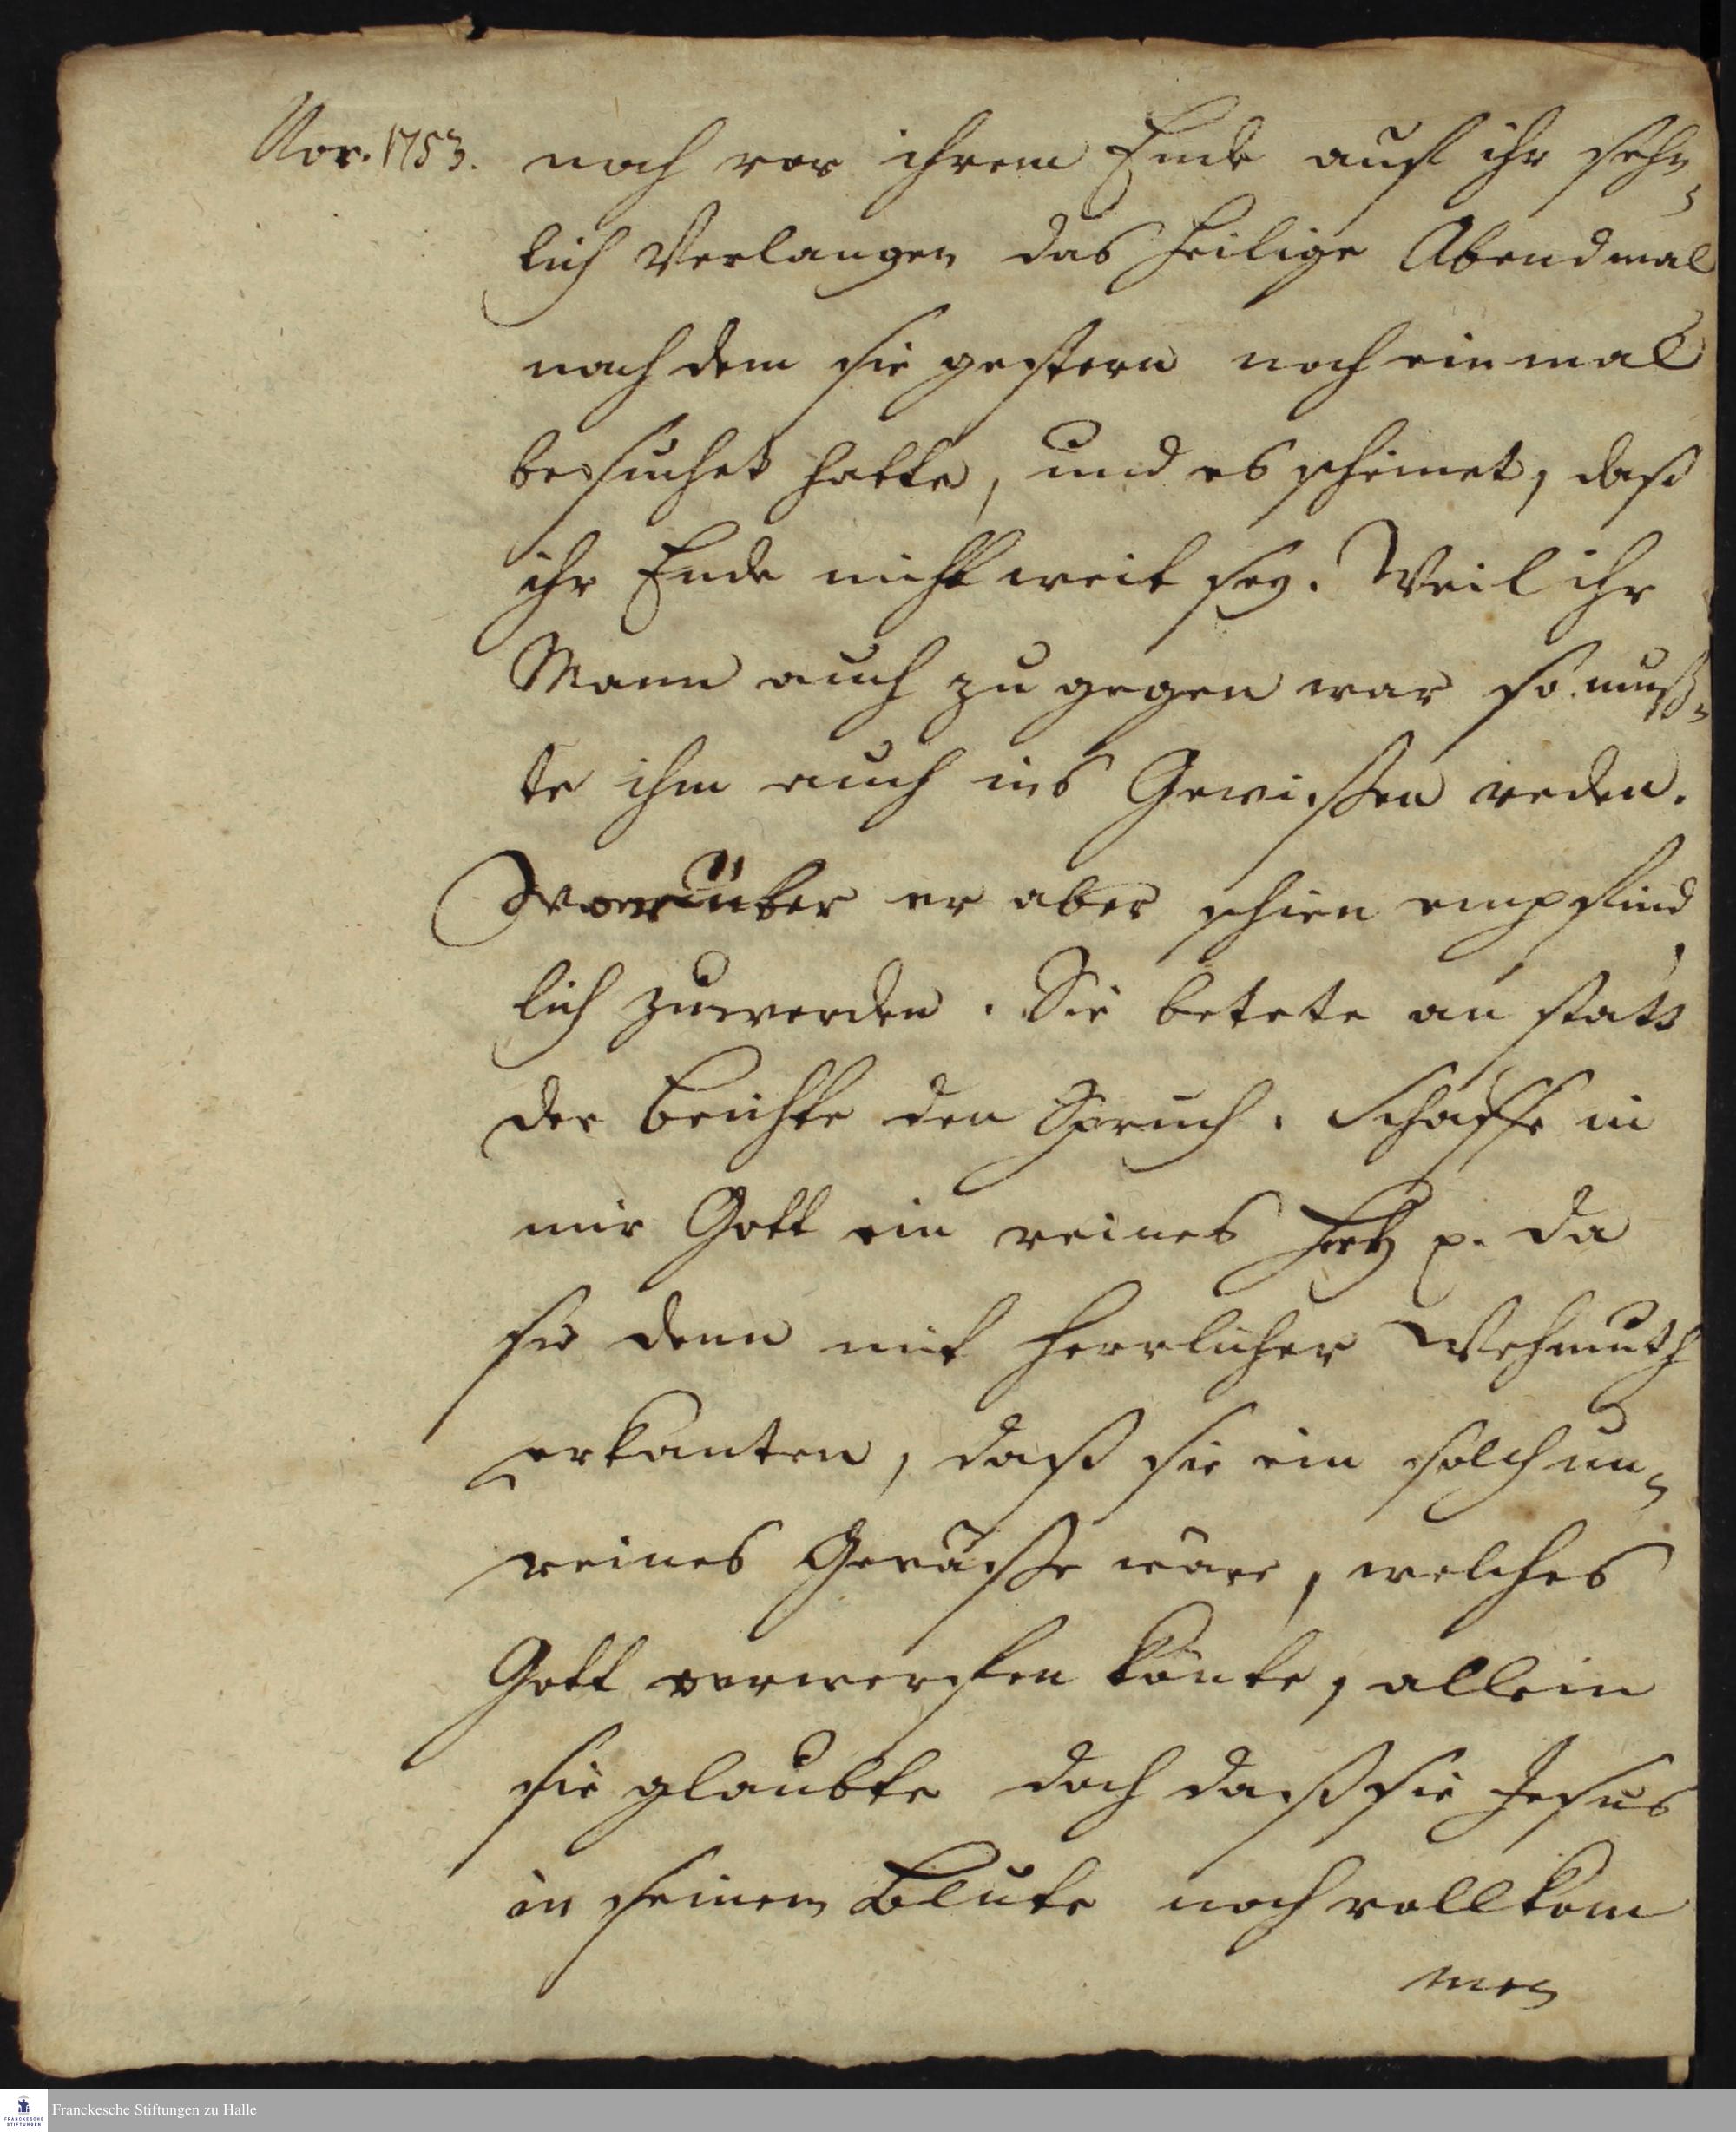 Nov. 1753. noch vor ihrem Ende auf ihr sehn-
lich Verlangen das heilige Abendmal
nach dem sie gestern noch ein mal
besuchet hatte, und es scheinet, daß
ihr Ende nicht weit sey. Weil ihr
Mann auch zu gegen war so muß-
te ihm auch ins Gewissen reden.
Worüber er aber schien empfind
lich zuwerden. Sie betete an statt
der Beichte den Spruch. Schaffe in
mir Gott ein reines Hertz p. da
sie denn mit herrlicher Wehmuth
erkanten, daß sie ein solch un-
reines Gevässe wäre, welches
Gott verwerfen könte, allein
sie glaubte doch daß sie Jesus
in seinem Blute noch vollkom
men
Franckesche Stiftungen zu Halle
FRANCKESCHE
STIFTUNGEN